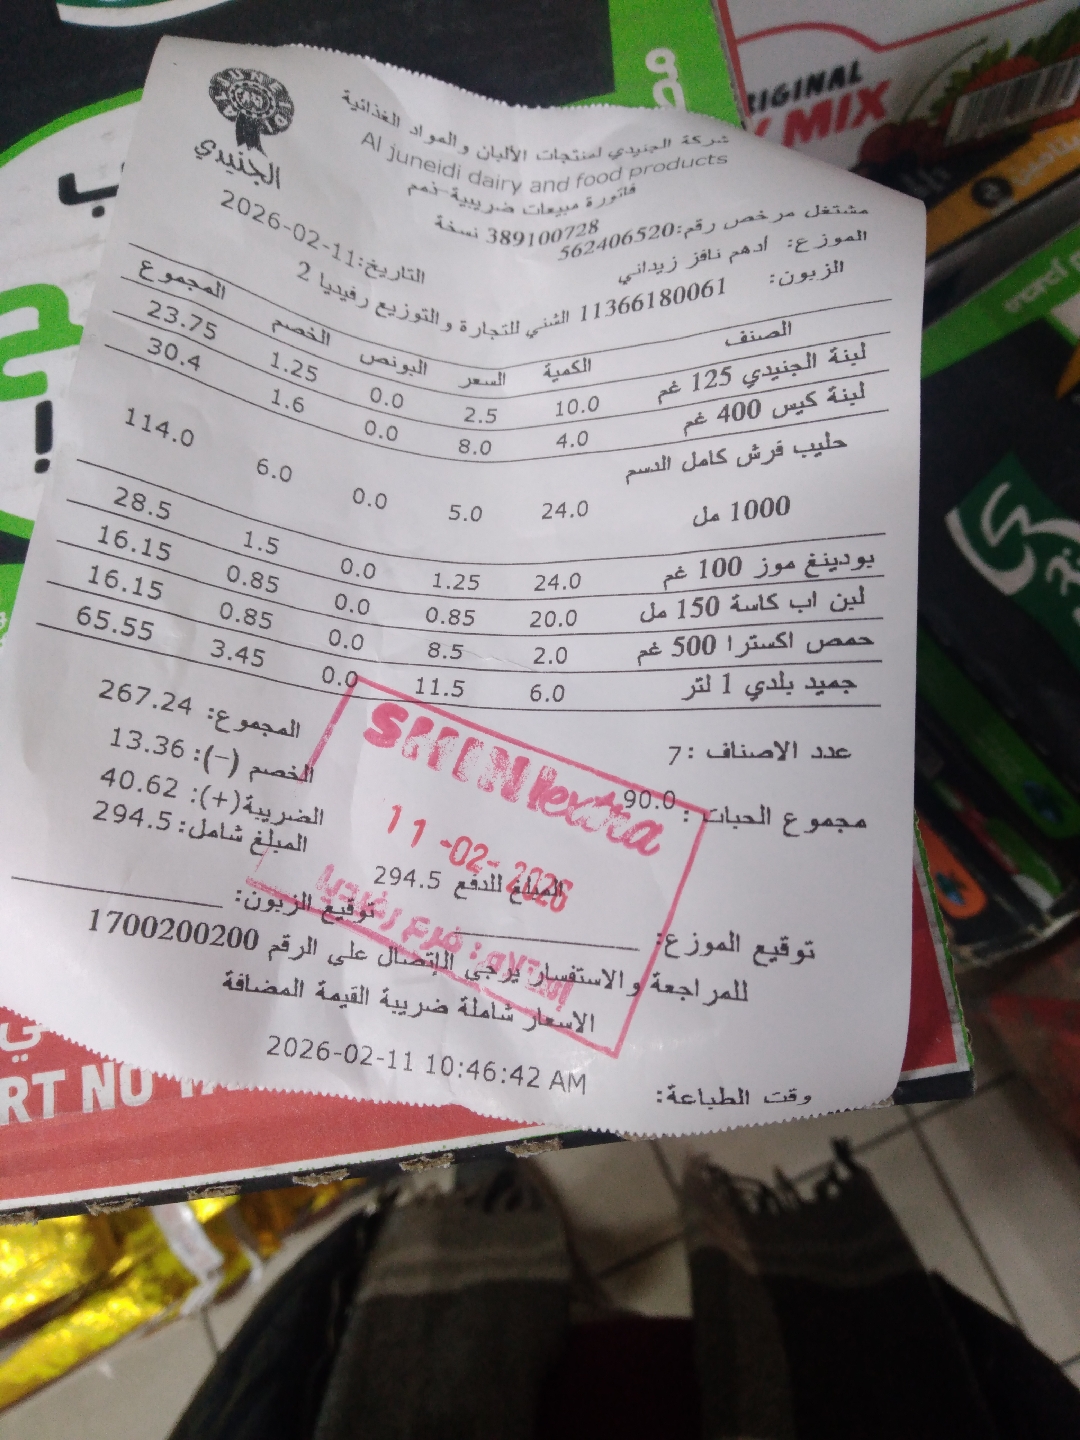 الجنيدي
شركة الجنيدي لمنتجات الألبان والمواد الغذائية
Al juneidi dairy and food products
فاتورة مبيعات ضريبية-ذمم
389100728 نسخة
مشتغل مرخص رقم:562406520
التاريخ:2026-02-11
الموزع: أدهم نافز زيداني
الزبون: 11366180061 الشني للتجارة والتوزيع رفيديا 2
الصنف الكمية السعر البونص الخصم المجموع
لبنة الجنيدي 125 غم 10.0 2.5 0.0 1.25 23.75
لبنة كيس 400 غم 4.0 8.0 0.0 1.6 30.4
حليب فرش كامل الدسم
1000 مل 24.0 5.0 0.0 6.0 114.0
بودينغ موز 100 غم 24.0 1.25 0.0 1.5 28.5
لبن اب كاسة 150 مل 20.0 0.85 0.0 0.85 16.15
حمص اكسترا 500 غم 2.0 8.5 0.0 0.85 16.15
جميد بلدي 1 لتر 6.0 11.5 0.0 3.45 65.55
عدد الاصناف :7
مجموع الحبات : 90.0
المجموع: 267.24
الخصم (-): 13.36
الضريبة(+): 40.62
المبلغ شامل: 294.5
المبلغ للدفع 294.5
SHINI extra
11-02-2026
إستلام: فرع رفيديا
توقيع الموزع:
توقيع الزبون:
للمراجعة والاستفسار يرجى الإتصال على الرقم 1700200200
الاسعار شاملة ضريبة القيمة المضافة
وقت الطباعة: 2026-02-11 10:46:42 AM
RIGINAL
MIX